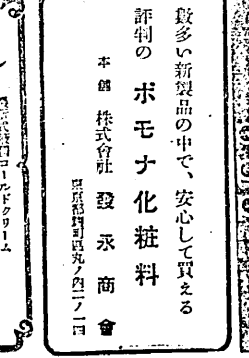 數多い新製品の中で、安心して買える
評判の ポモナ化粧料
本舖 株式會社 發永商會
東京都麹町區丸ノ內二ノ一四
コールドクリーム